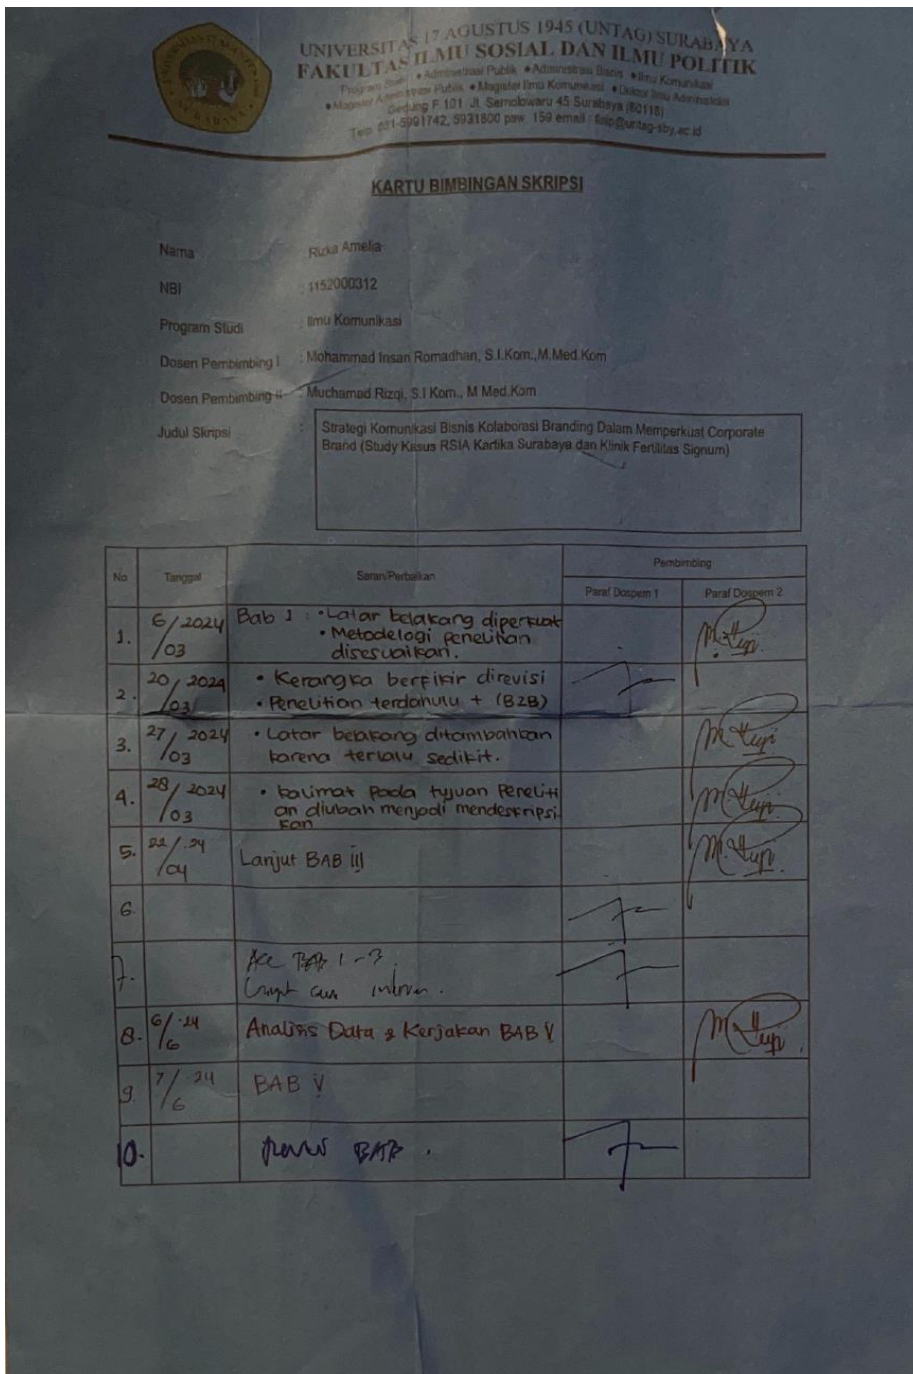 UNIVERSITAS 17 AGUSTUS 1945 (UNTAG) SURABAYA
FAKULTAS ILMU SOSIAL DAN ILMU POLITIK
Program Studi : • Administrasi Publik • Administrasi Bisnis • Ilmu Komunikasi
• Magister Administrasi Publik • Magister Ilmu Komunikasi • Doktor Ilmu Administrasi
Gedung F 101 Jl. Semolowaru 45 Surabaya (60118)
Telp. 031-5991742, 5931800 psw. 159 email : fisip@untag-sby.ac.id
KARTU BIMBINGAN SKRIPSI
Nama : Rizka Amelia
NBI : 1152000312
Program Studi : Ilmu Komunikasi
Dosen Pembimbing I : Mohammad Insan Romadhan, S.I.Kom.,M.Med.Kom
Dosen Pembimbing II : Muchamad Rizqi, S.I Kom., M Med.Kom
Judul Skripsi : Strategi Komunikasi Bisnis Kolaborasi Branding Dalam Memperkuat Corporate
Brand (Study Kasus RSIA Kartika Surabaya dan Klinik Fertilitas Signum)
No Tanggal Saran/Perbaikan Pembimbing
Paraf Dospem 1 Paraf Dospem 2
1. 6/03 2024 Bab 1 : • Latar belakang diperkuat
• Metodelogi penelitian
disesuaikan.
2. 20/03 2024 • Kerangka berfikir direvisi
• Penelitian terdahulu + (B2B)
3. 27/03 2024 • Latar belakang ditambahkan
karena terlalu sedikit.
4. 28/03 2024 • kalimat pada tujuan Peneliti
an diubah menjadi mendeskripsi
kan
5. 22/04 .24 Lanjut BAB III
6.
7. Acc BAB 1-3.
8. 6/6 .24 Analisis Data & Kerjakan BAB V
9. 7/6 .24 BAB V
10. BAB .